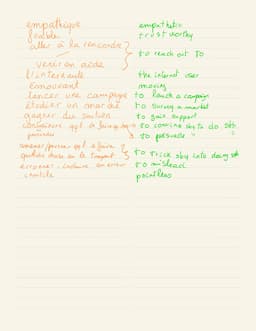 empathique empathetic
fiable trustworthy
aller à la rencontre
to reach out to
venir en aide
l'internaute the internet user
émouvant moving
lancer une campagne to launch a campaign
étudier un marché to survey a market
gagner du soutien to gain support
convaincre qql à faire qq chose to convince sby to do sth
persuader to persuade " "
amener/pousser qql à faire
to trick sby into doing sth
quelque chose en le trompant
, induire en erreur to mislead
inutile pointless